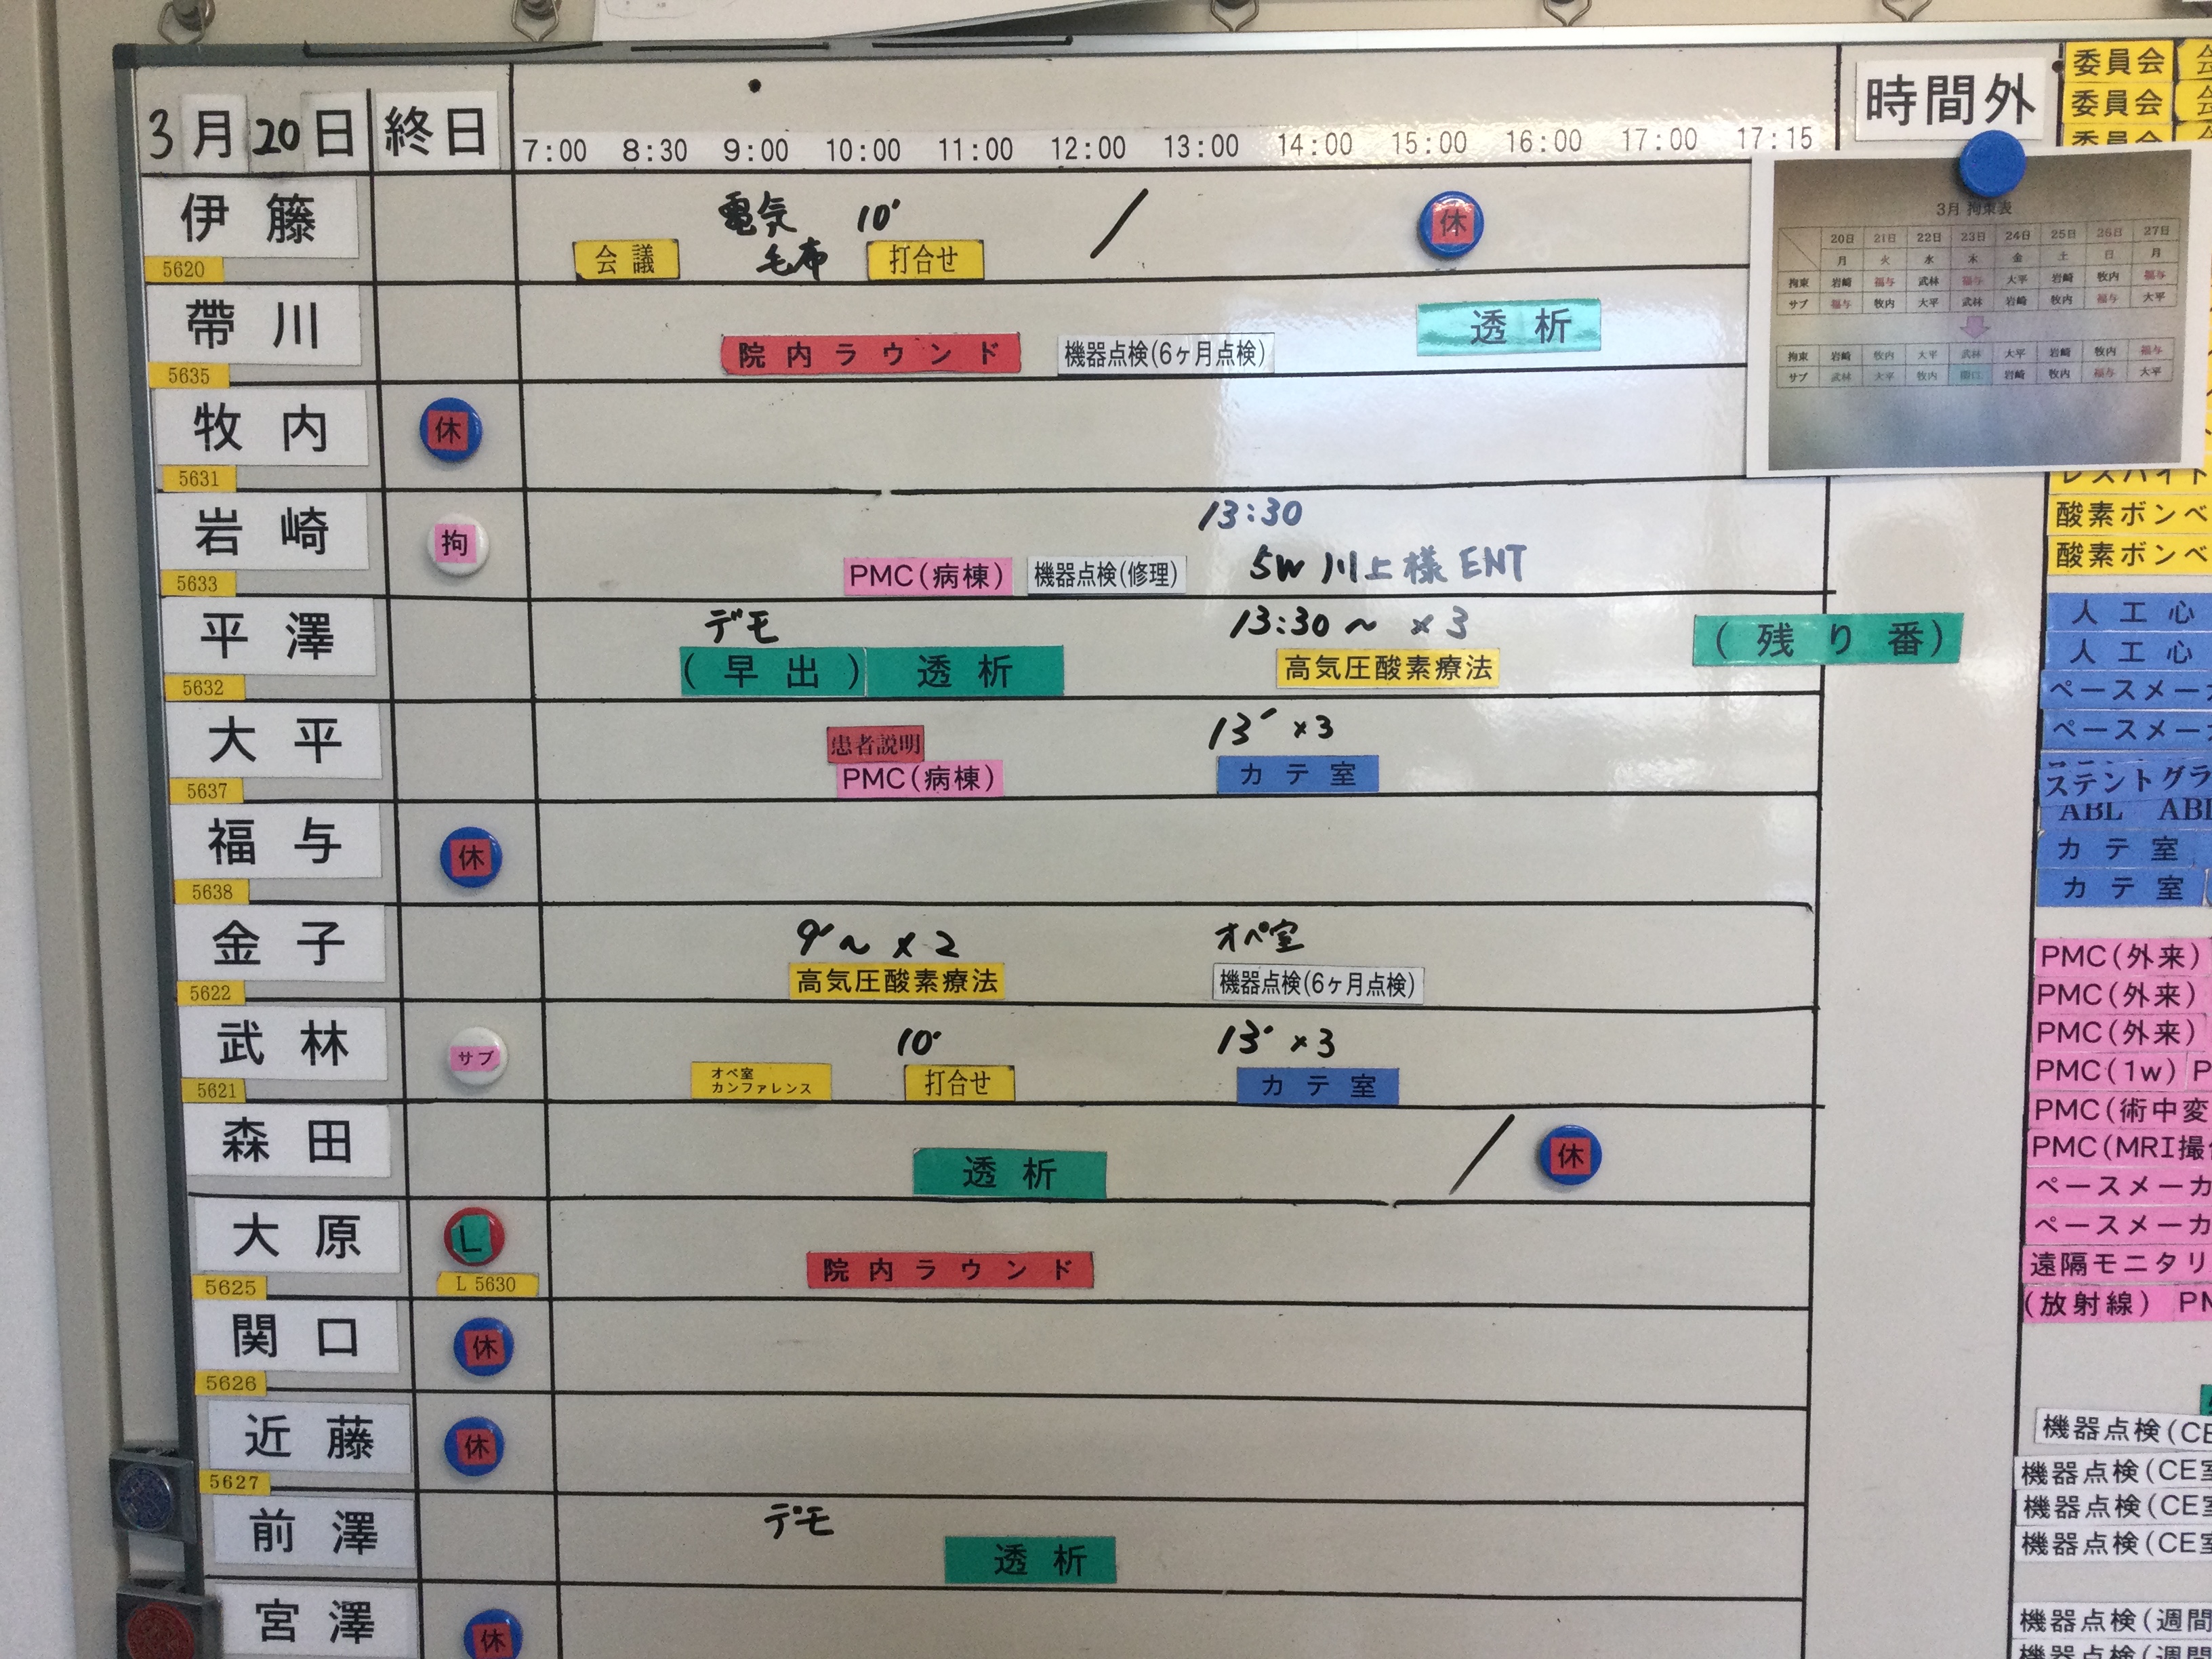 3月20日 終日 7:00 8:30 9:00 10:00 11:00 12:00 13:00 14:00 15:00 16:00 17:00 17:15 時間外
伊籐 5620 会議 電気 毛布 10' 打合せ / 休
帶川 5635 院内ラウンド 機器点検(6ヶ月点検) 透析
牧内 5631 休
岩崎 5633 拘 PMC(病棟) 機器点検(修理) 13:30 5W 川上様 ENT
平澤 5632 デモ (早出) 透析 13:30〜 ×3 高気圧酸素療法 (残り番)
大平 5637 患者説明 PMC(病棟) 13' ×3 カテ室
福与 5638 休
金子 5622 9'〜 ×2 高気圧酸素療法 オペ室 機器点検(6ヶ月点検)
武林 5621 サブ オペ室 カンファレンス 10' 打合せ 13' ×3 カテ室
森田 透析 / 休
大原 5625 L L 5630 院内ラウンド
関口 5626 休
近藤 5627 休
前澤 デモ 透析
宮澤 休
3月 拘束表
20日 21日 22日 23日 24日 25日 26日 27日
月 火 水 木 金 土 日 月
拘束 岩崎 福与 武林 福与 大平 岩崎 牧内 福与
サブ 福与 牧内 大平 武林 岩崎 牧内 福与 大平
拘束 岩崎 牧内 大平 武林 大平 岩崎 牧内 福与
サブ 武林 大平 牧内 関口 岩崎 牧内 福与 大平
委員会
委員会
委員会
レスパイト
酸素ボンベ
酸素ボンベ
人工心
人工心
ペースメーカ
ペースメーカ
ステントグラ
ABL ABL
カテ室
カテ室
PMC(外来)
PMC(外来)
PMC(外来)
PMC(1w) P
PMC(術中変
PMC(MRI撮
ペースメーカ
ペースメーカ
遠隔モニタリ
(放射線) PM
機器点検(CE
機器点検(CE室
機器点検(CE室
機器点検(CE室
機器点検(週間
機器点検(週間